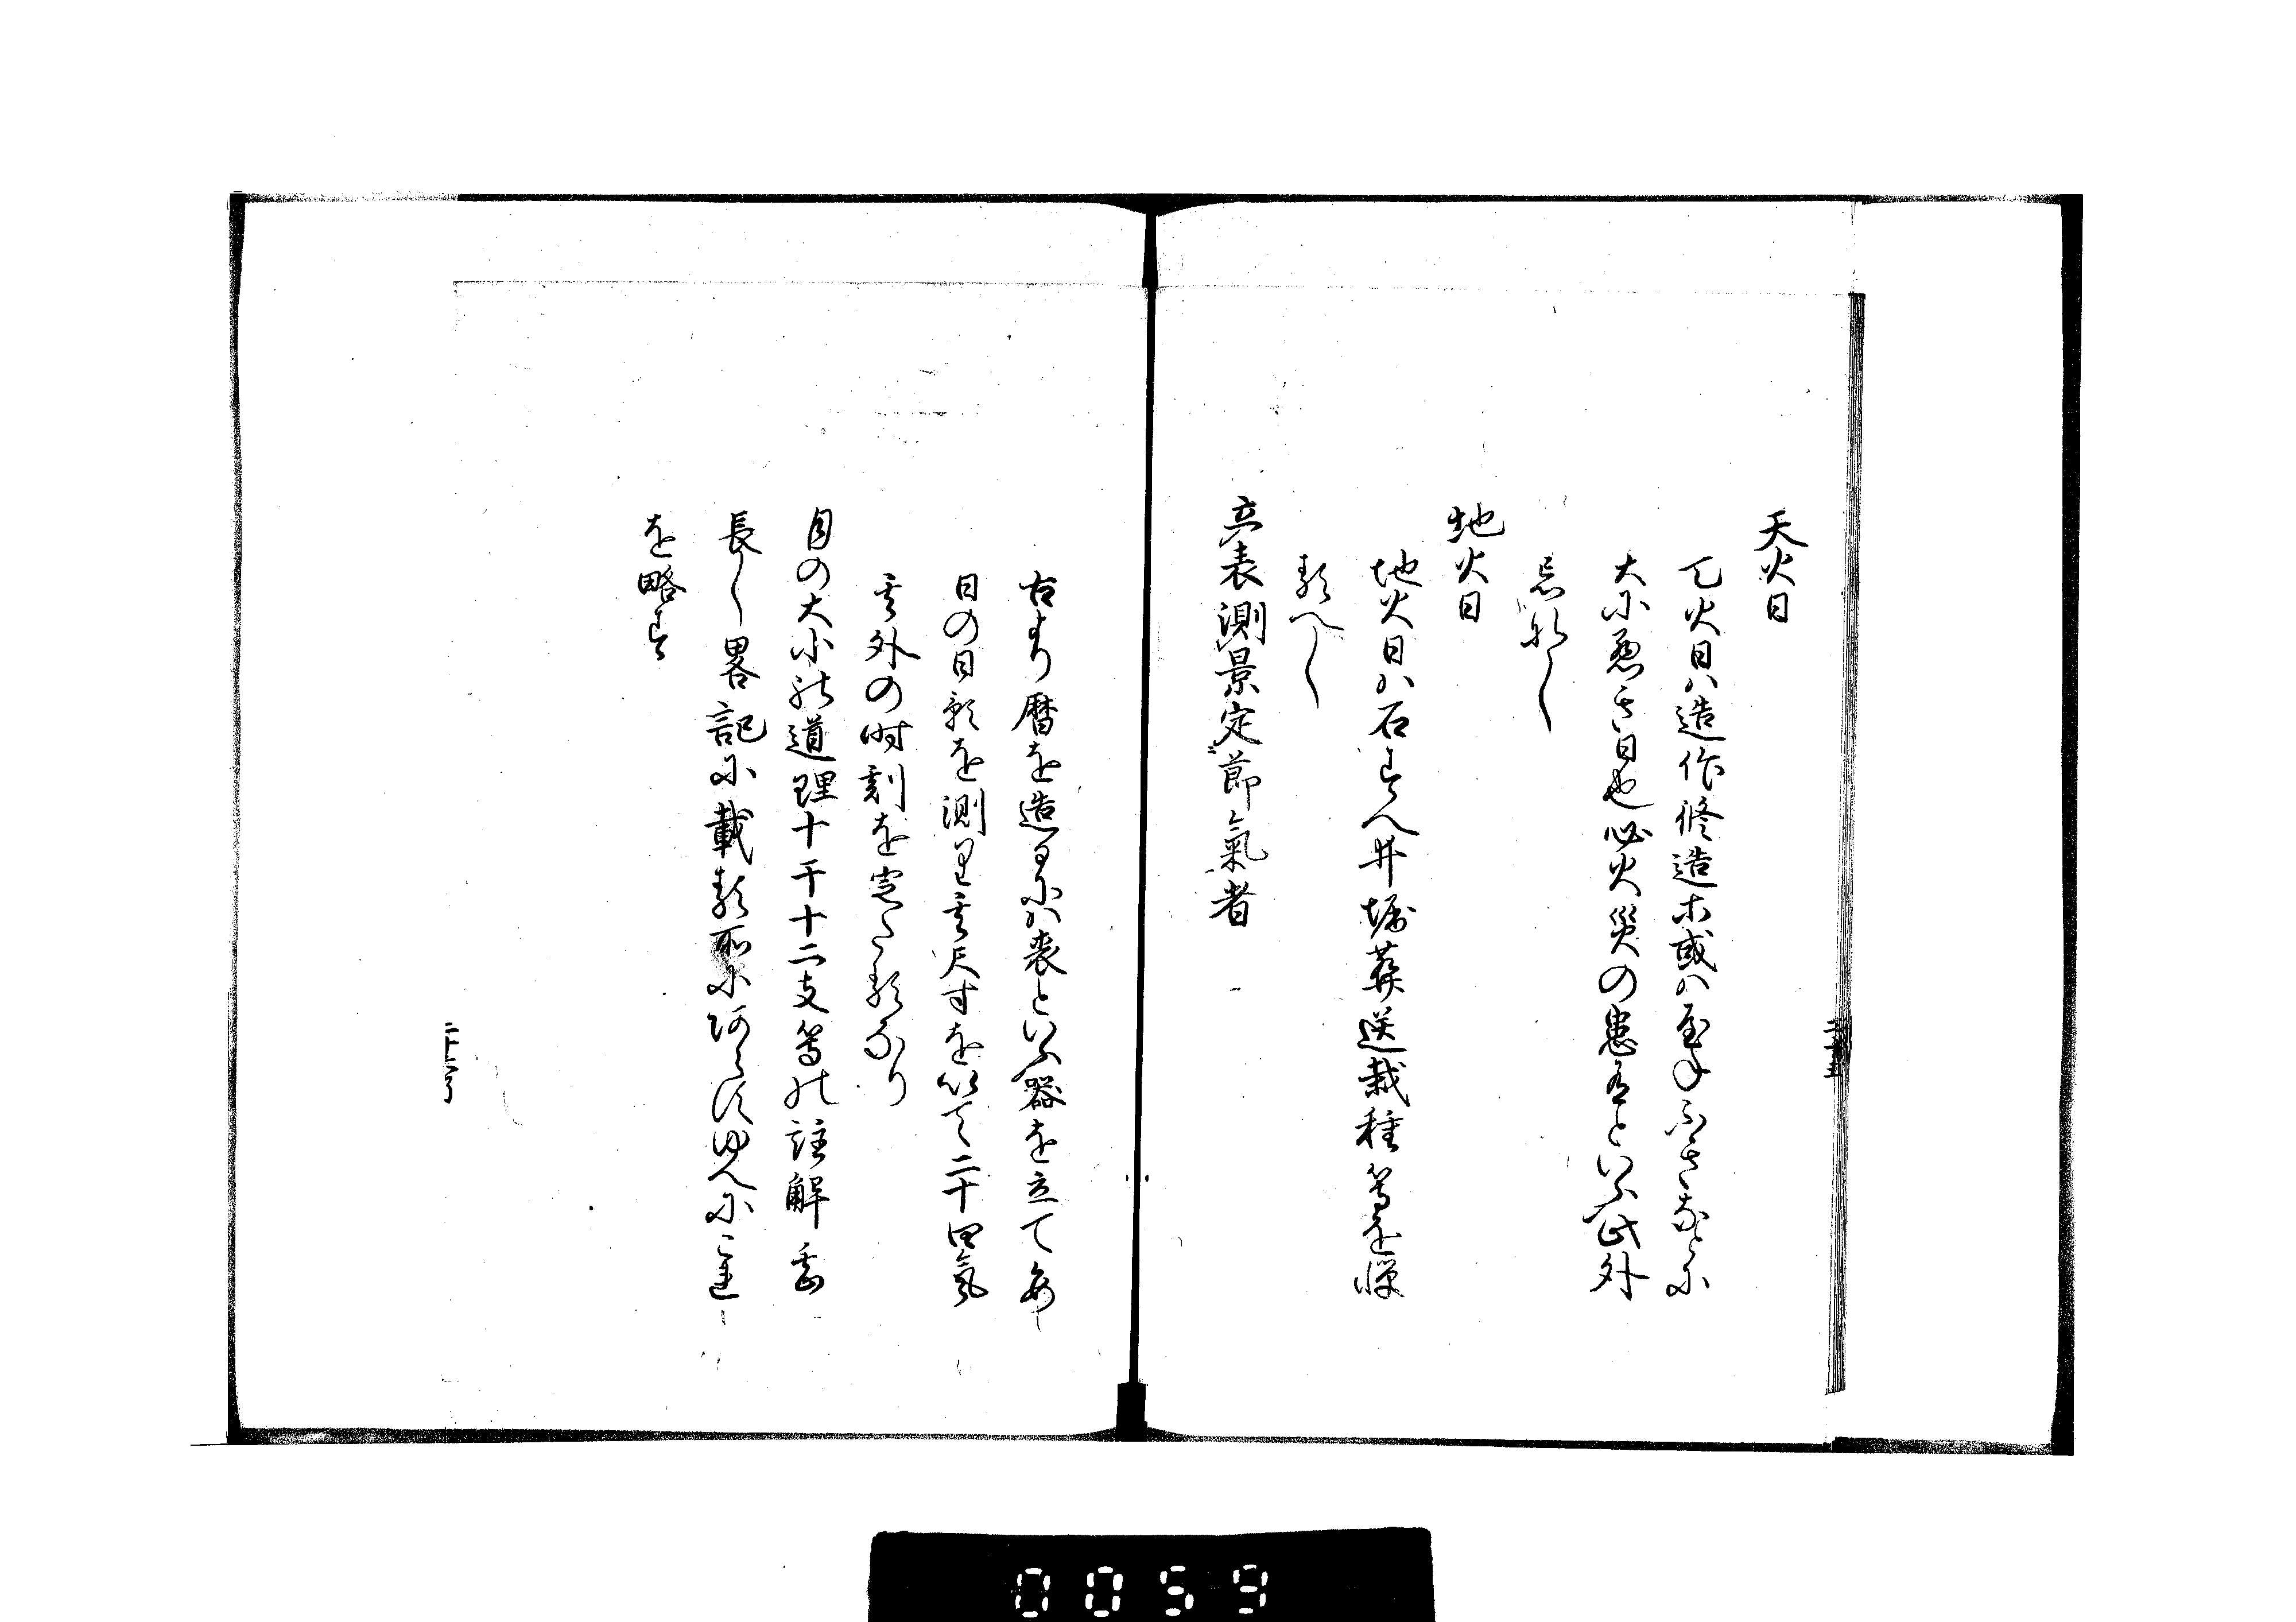 天火日
天火日ハ造作修造等或ハ屋祢ふきなとに
大に悪き日也必火災の患有といふ此外
忌なし
地火日
地火日ハ石すへ井堀葬送栽種等を憚
るへし
立表測景定節氣者
古より暦を造るにハ表といふ器を立て毎
日の日影を測り其尺寸を以て二十四氣
其外の時刻を定たるなり
月の大小の道理十干十二支等の註解甚
長し畧記に載る所にあらすゆへにこれ
を略す
二十五
二十六了
0059